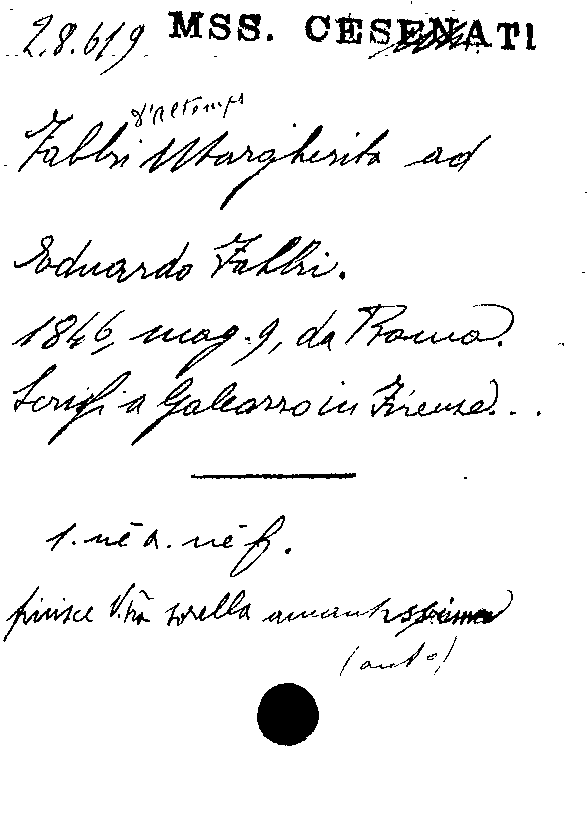 2.8.619 MSS. CESENATI
d'Altemps
Fabbri Margherita ad
Eduardo Fabbri.
1846, mag. 9, da Roma.
Scrissi a Galeazzo in Firenze...
1. né a. né f.
finisce V.tra sorella amantissima
(aut°)